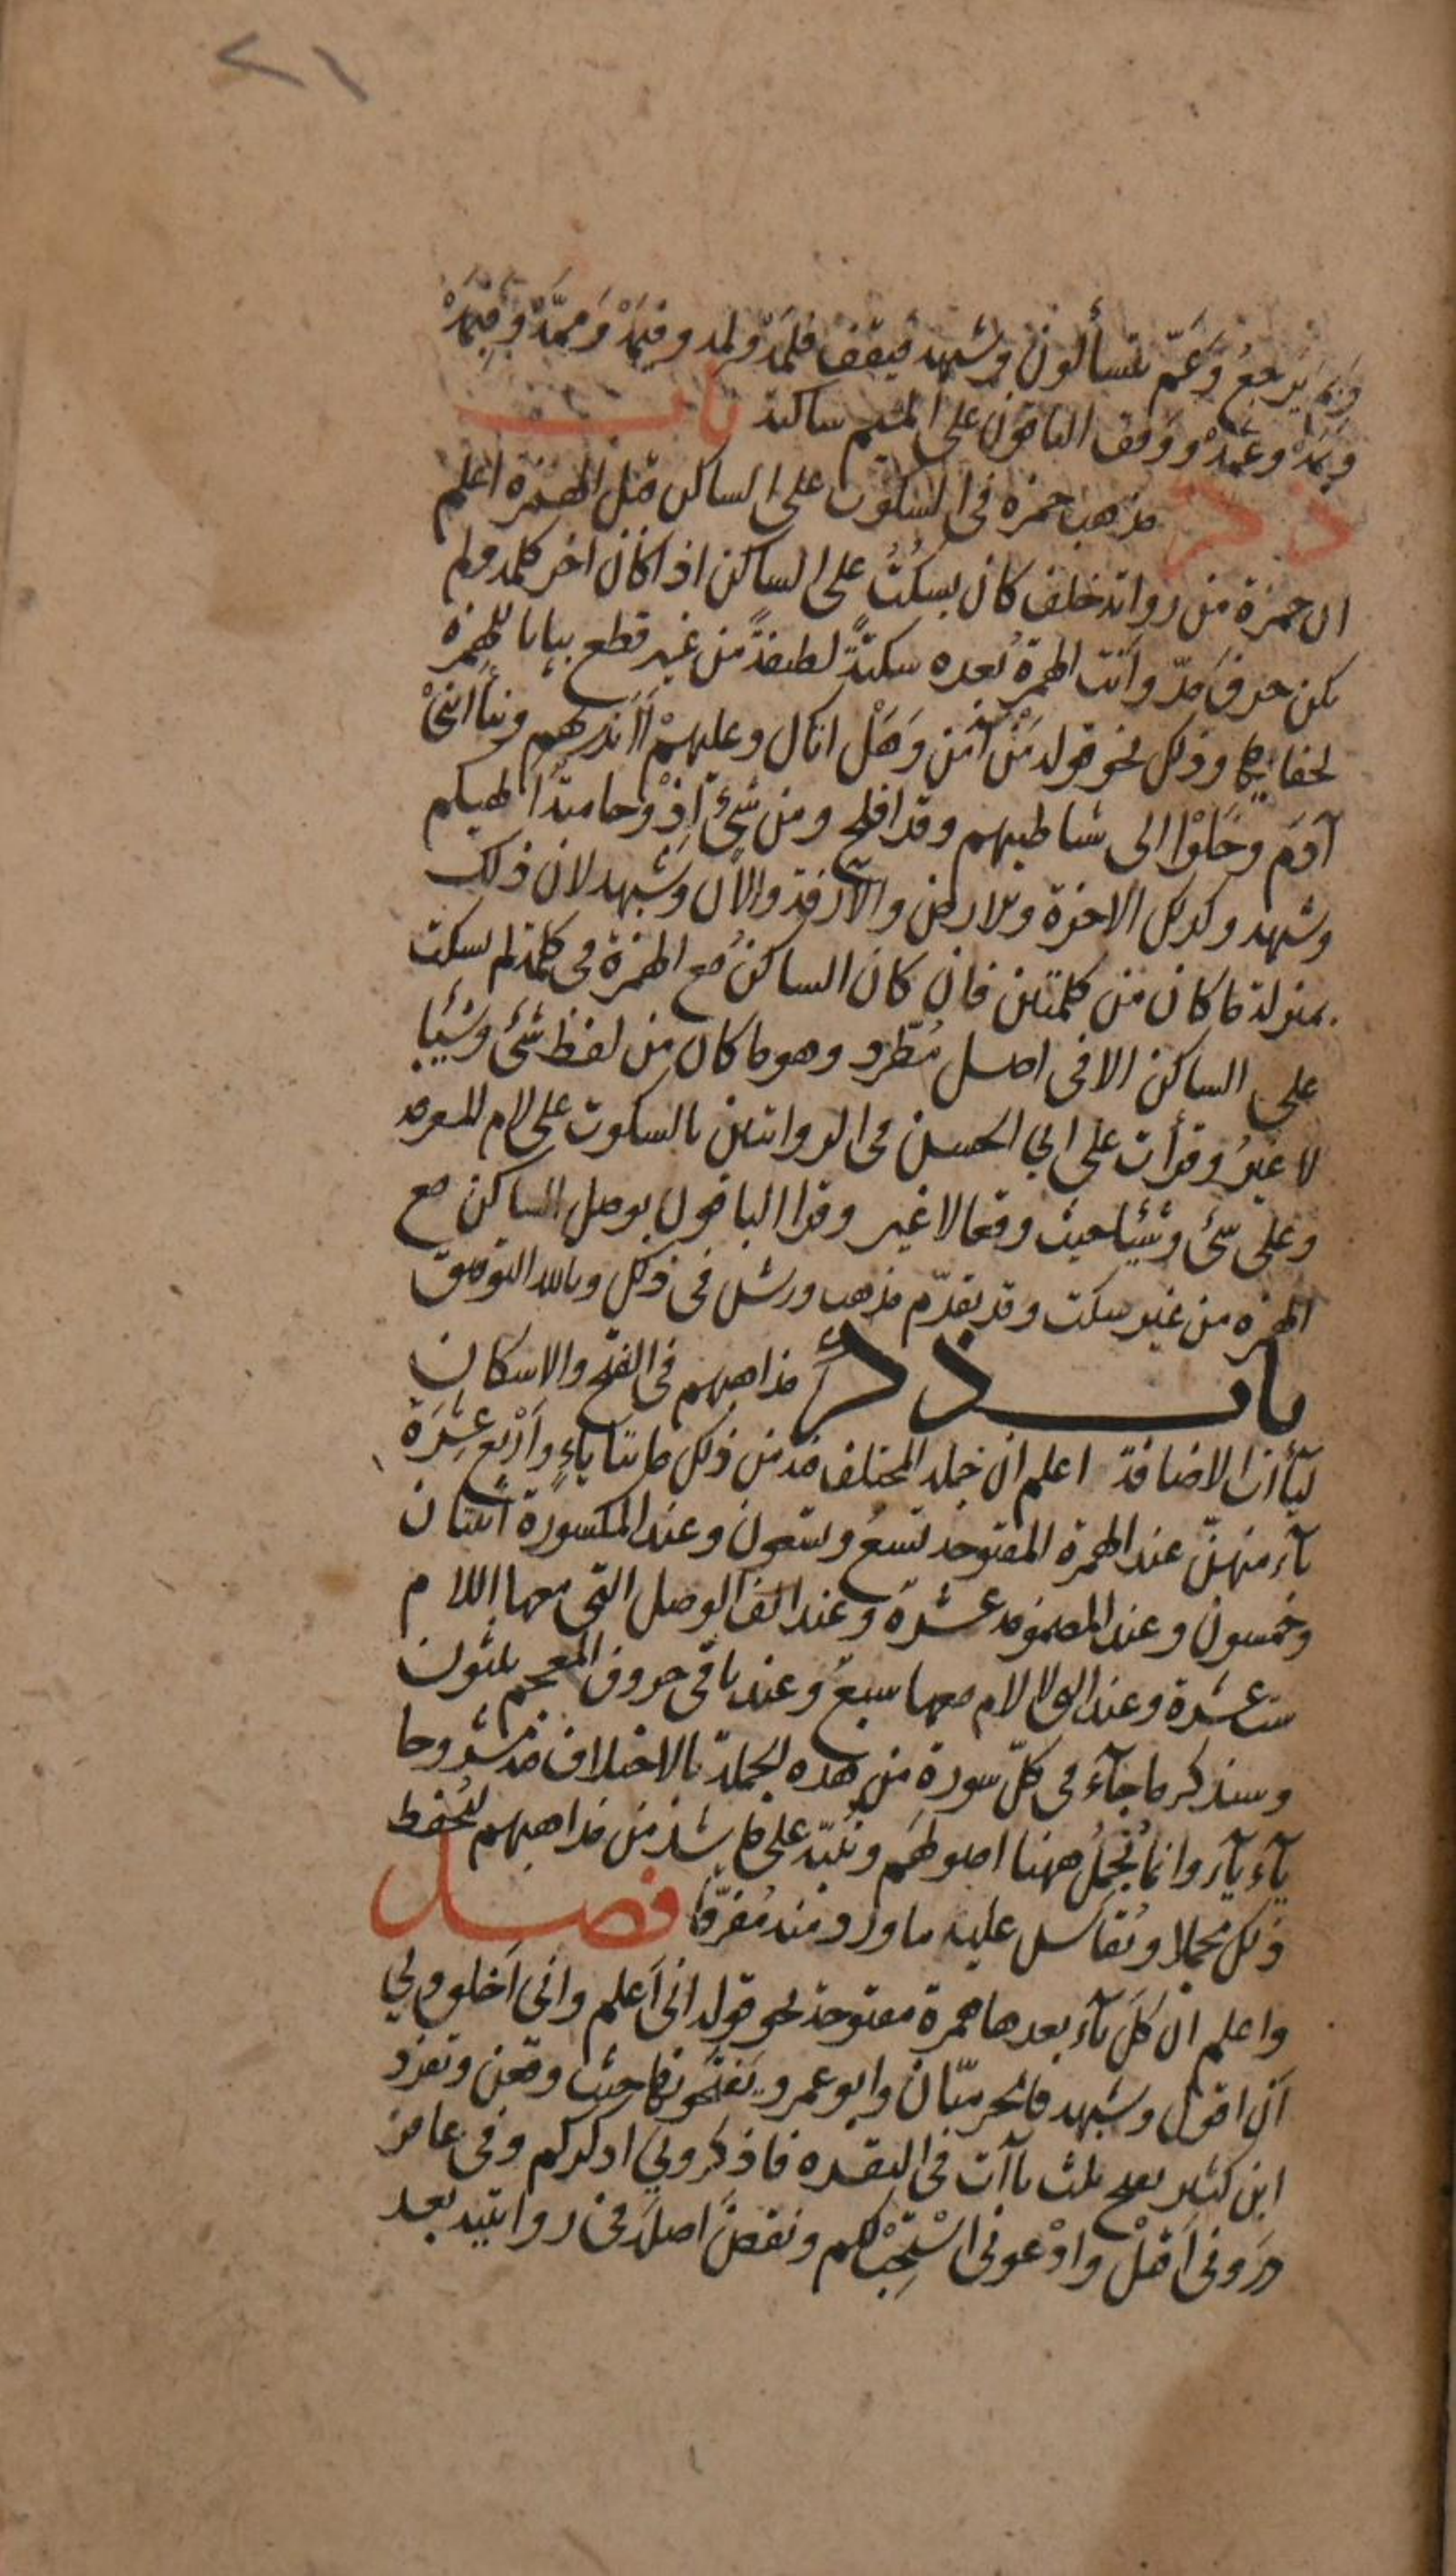 ٢١
وبم يرجع وعم يتسألون وشبهه فيقف فلمه ولمه وفيمه وممه وفبمه
وبمه وعمه ووقف الباقون على الميم ساكنة باب
ذكر مذهب حمزة في السكوت على الساكن قبل الهمزة اعلم
ان حمزة من رواية خلف كان يسكت على الساكن اذا كان اخر كلمة ولم
يكن حرف مد واتت الهمزة بعده سكتة لطيفة من غير قطع بيانا للهمزة
لخفايها وذلك نحو قوله من آمن وهل اتاك وعليهم أأنذرتهم ونبأ ابني
آدم وخلوا الى شياطينهم وقد افلح ومن شئ اذ وحامية الهيكم
وشبهه وكذلك الاخرة والارض والآزفة والآن وشبهه لان ذلك
بمنزلة ما كان من كلمتين فان كان الساكن مع الهمزة في كلمة لم يسكت
على الساكن الا في اصل مطرد وهو ما كان من لفظ شئ وشيئا
لا غير وقرأت على ابي الحسن في الروايتين بالسكوت على لام المعرفة
وعلى شئ وشيئا حيث وقعا لا غير وقرا الباقون بوصل الساكن مع
الهمزة من غير سكت وقد تقدم مذهب ورش في ذلك وبالله التوفيق
باب ذكر مذاهبهم في الفتح والاسكان
ليآءات الاضافة اعلم ان جملة المختلف فيه من ذلك مايتا ياء واربع عشرة
يآء منهن عند الهمزة المفتوحة تسع وتسعون وعند المكسورة اثنتان
وخمسون وعند المضمومة عشرة وعند الف الوصل التي معها اللام
ست عشرة وعند التي لا لام معها سبع وعند باقي حروف المعجم ثلثون
وسنذكر ما جآء في كل سورة من هذه الجملة بالاختلاف فيه مشروحا
يآء يآء وانما نجمل ههنا اصولهم وننبه على ما شذ من مذاهبهم ليحفظ
ذلك مجملا ويقاس عليه ما ورد منه مفرقا فصل
واعلم ان كل يآء بعدها همزة مفتوحة نحو قوله اني اعلم واني اخلق ولي
ان اقول وشبهه فالحرميان وابو عمرو يفتحونها حيث وقعن وتفرد
ابن كثير بفتح ثلث ياآت في البقرة فاذكروني اذكركم وفي غافر
ذروني اقتل وادعوني استجب لكم ونقض اصله في روايتيه بعد